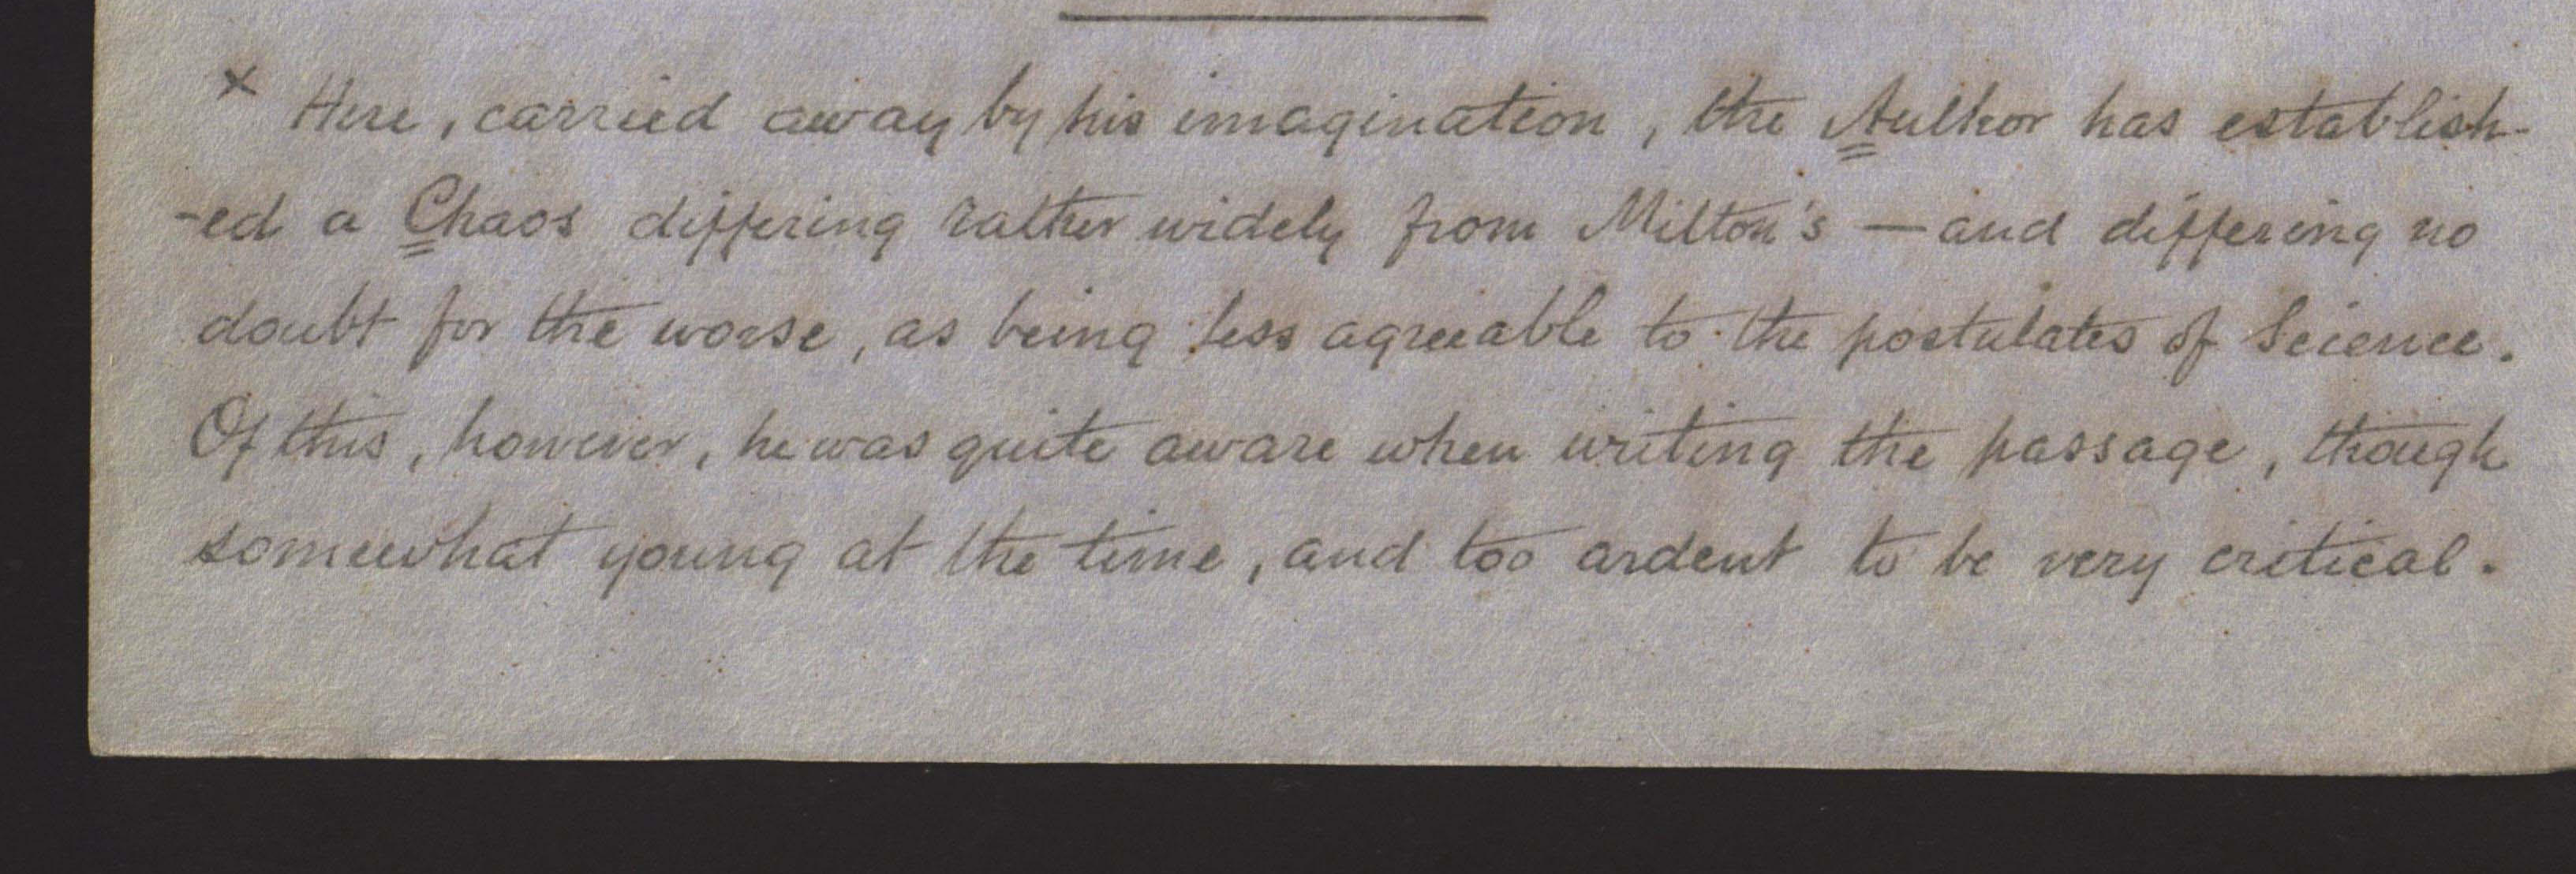 × Here, carried away by his imagination, the Author has establish-
-ed a Chaos differing rather widely from Milton's — and differing no
doubt for the worse, as being less agreeable to the postulates of Science.
Of this, however, he was quite aware when writing the passage, though
somewhat young at the time, and too ardent to be very critical.